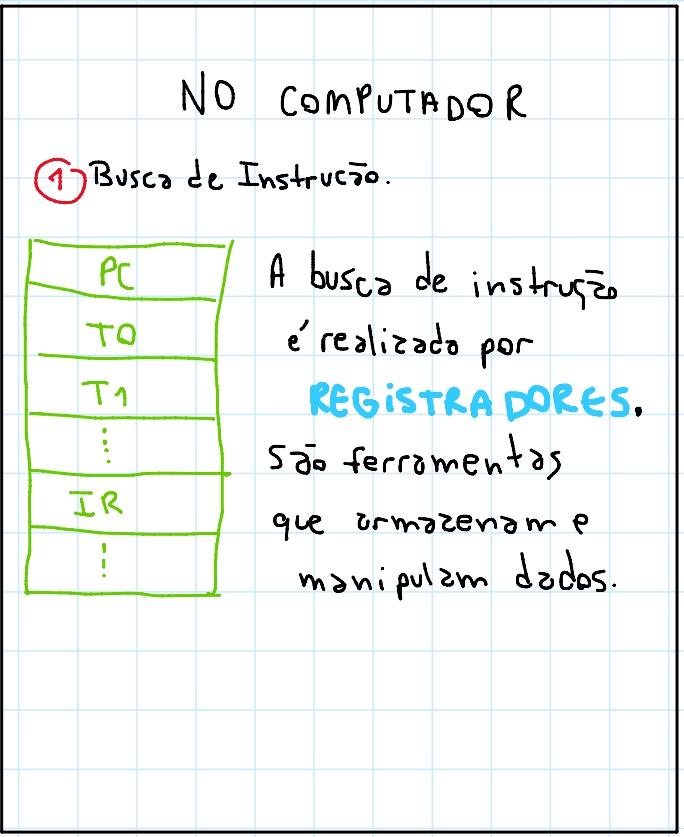 NO COMPUTADOR
1 Busca de Instrução.
PC
T0
T1
⋮
IR
⋮
A busca de instrução
é realizada por
REGISTRADORES.
São ferramentas
que armazenam e
manipulam dados.